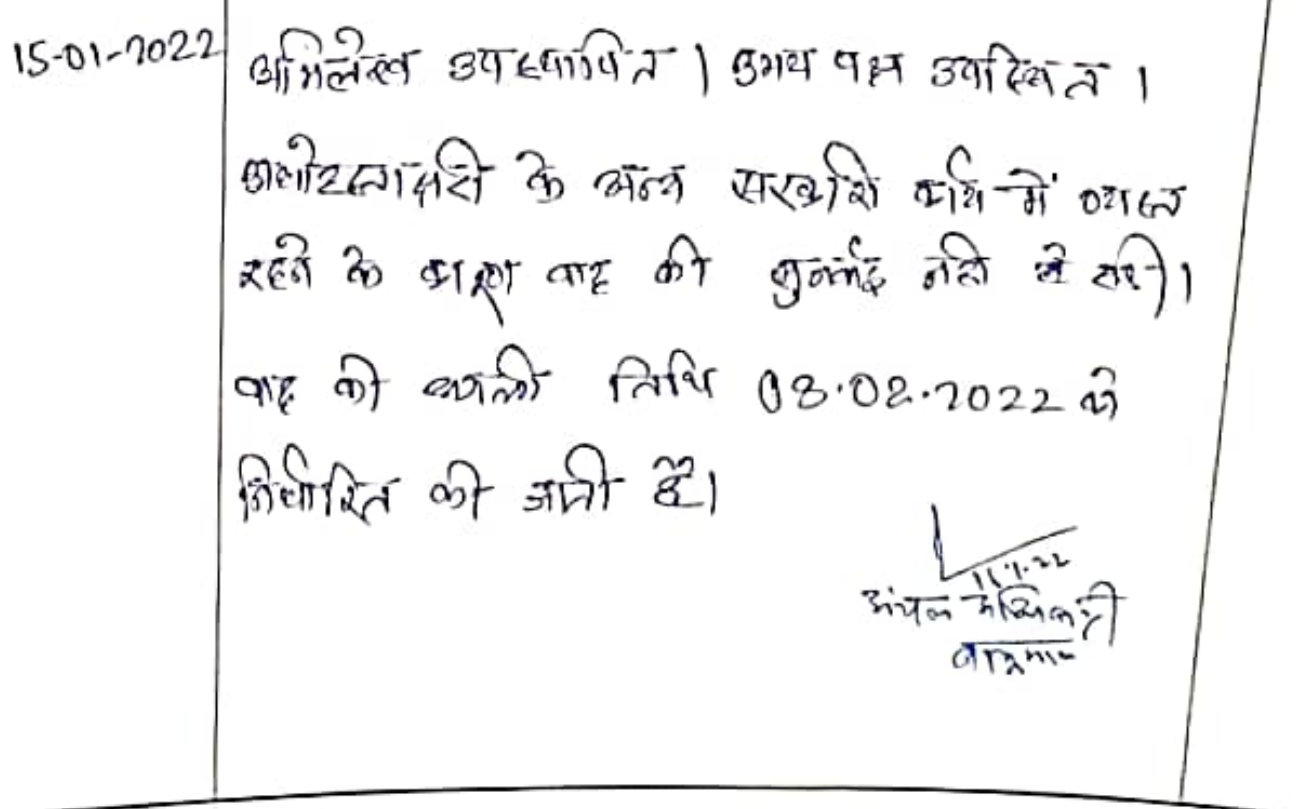 15-01-2022 अभिलेख उपस्थापित । उभय पक्ष उपस्थित ।
अधोहस्ताक्षरी के अन्य सरकारी कार्य में व्यस्त
रहने के कारण वाद की सुनवाई नहीं हो सकी।
वाद की अगली तिथि 08.02.2022 को
निर्धारित की जाती है।
अंचल अधिकारी